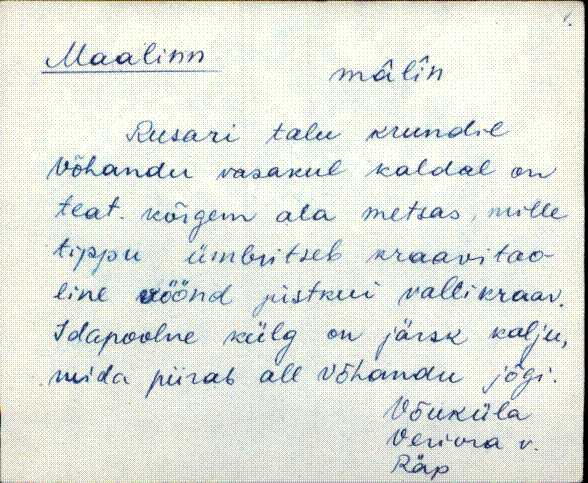 1.
Maalinn
mâlîn
Rusari talu krundil
Võhandu vasakul kaldal on
teat. kõrgem ala metsas, mille
tippu ümbritseb kraavitao-
line vöönd justkui vallikraav.
Idapoolne külg on järsk kalju,
mida piirab all Võhandu jõgi.
Võuküla
Veriora v.
Räp